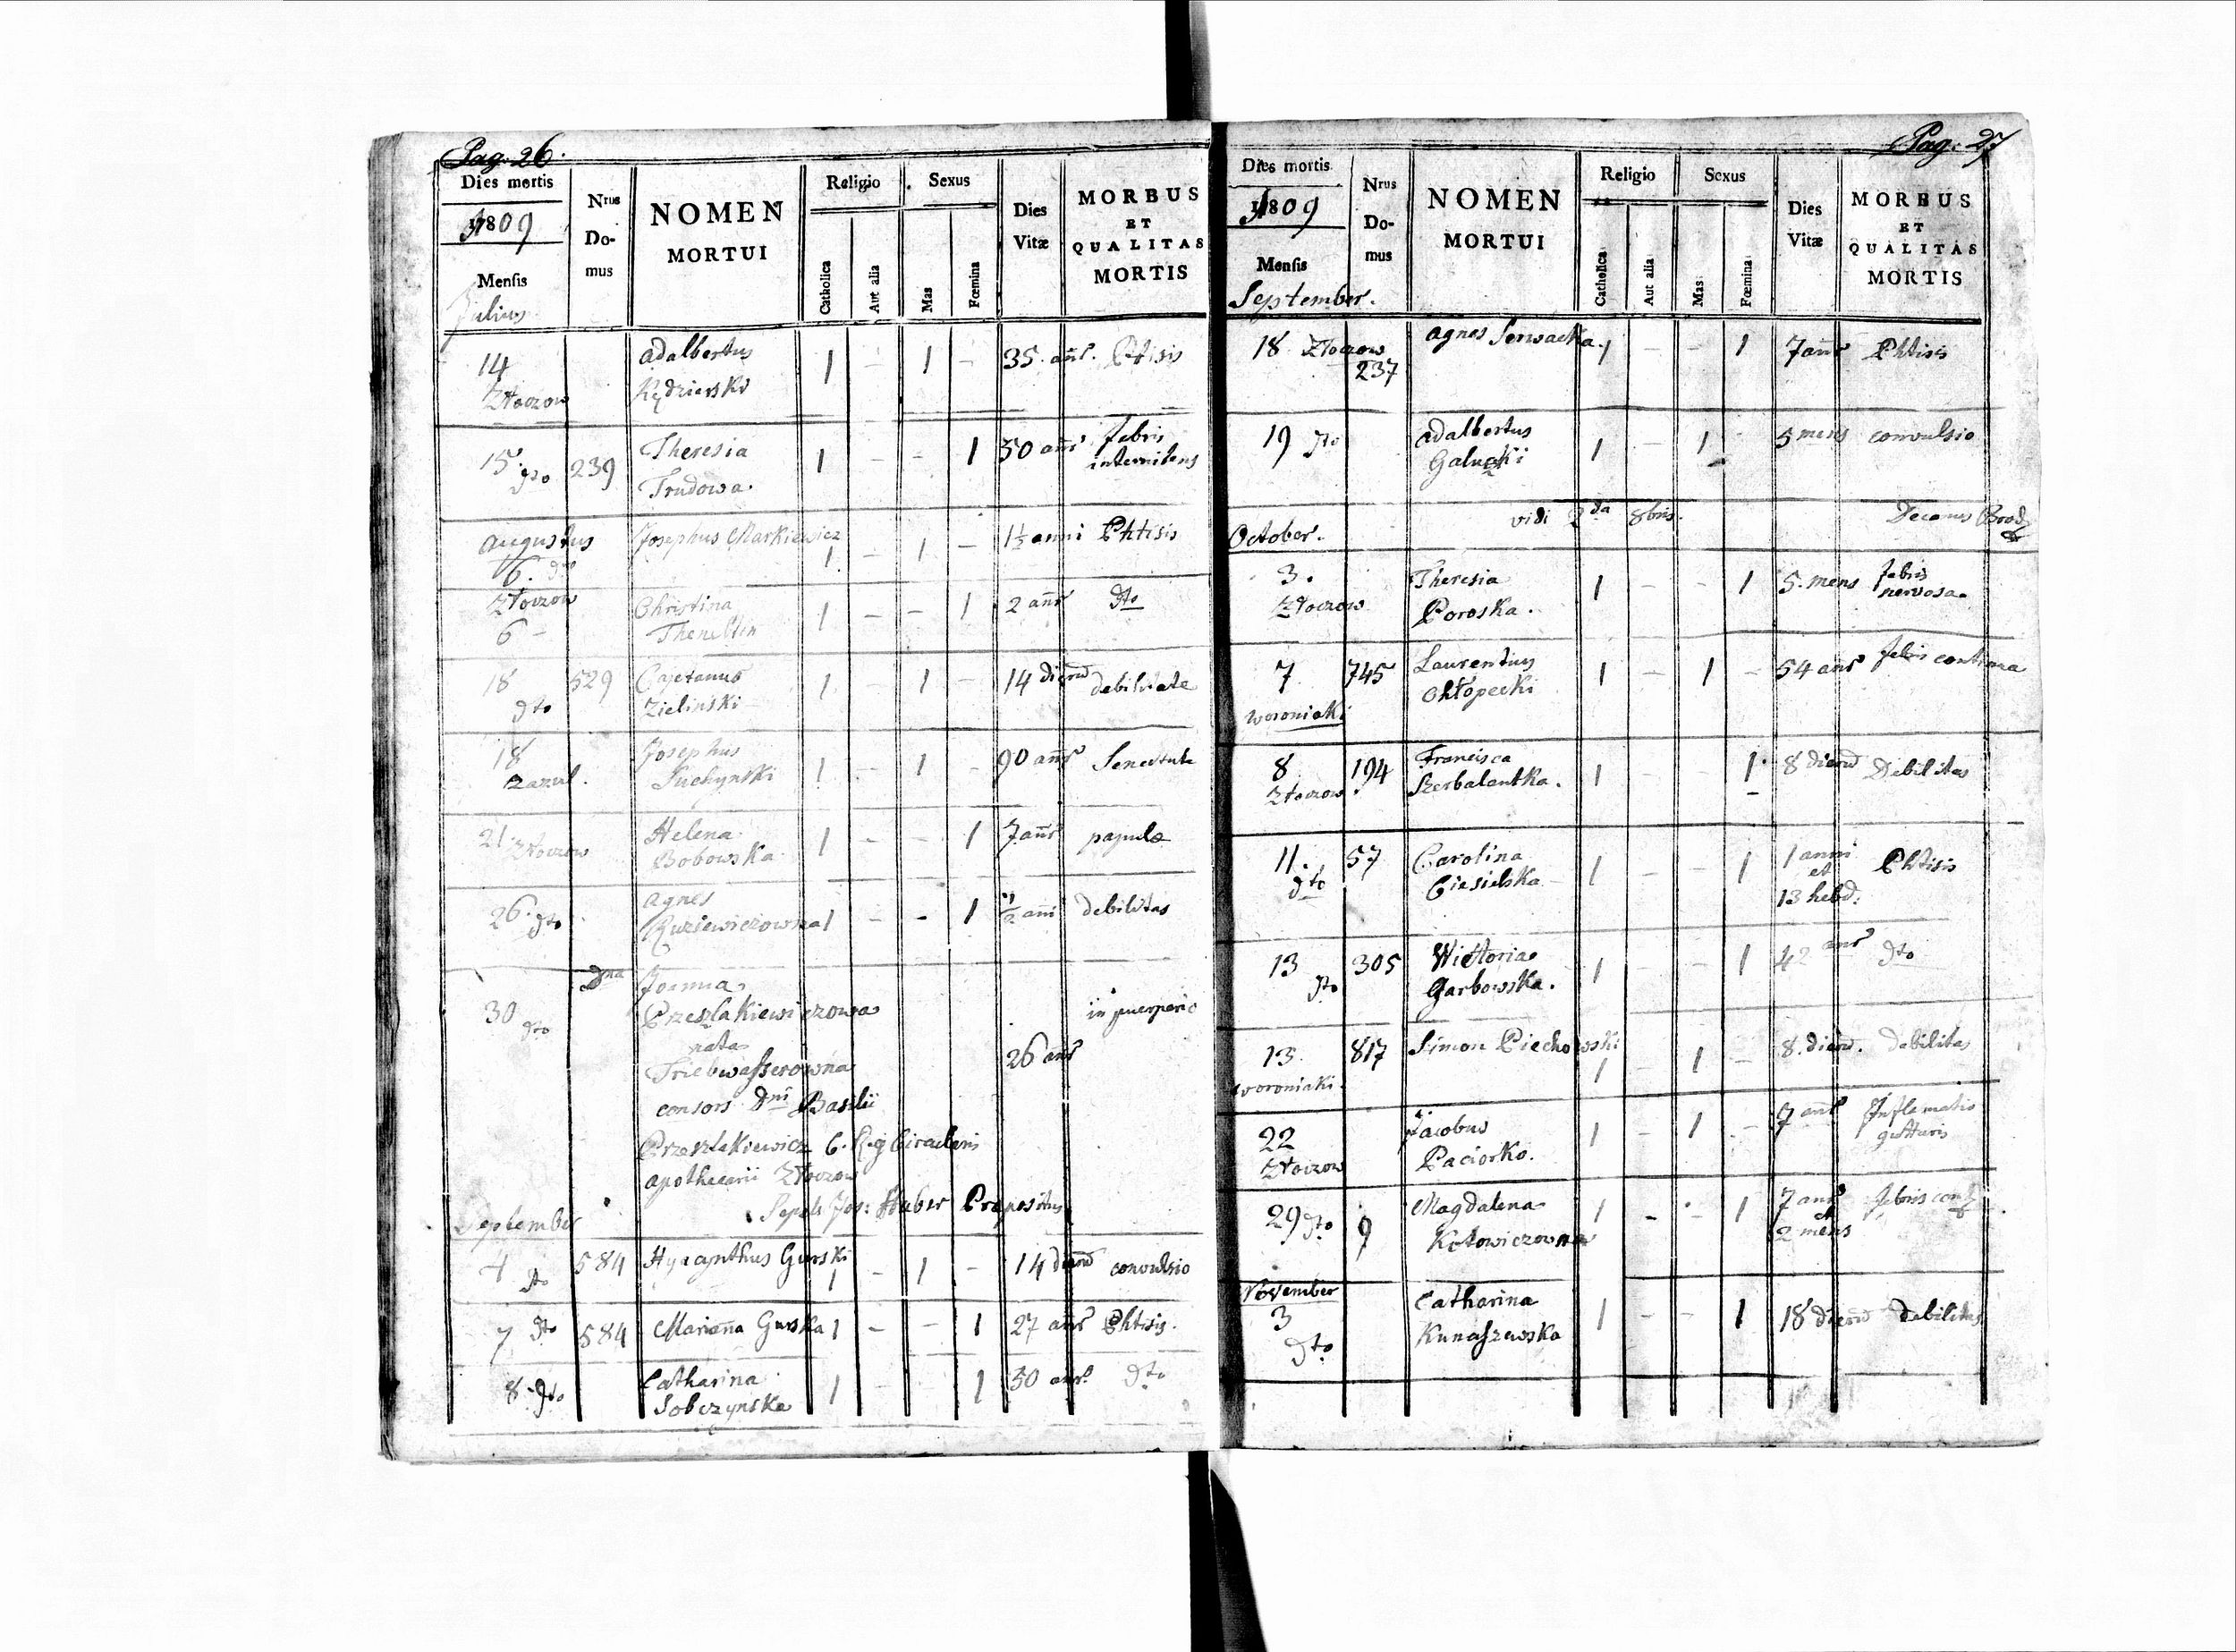 Pag. 26.
Dies mortis
1809
Mensis
Julius
Nrus
Do-
mus
NOMEN
MORTUI
Religio
Catholica
Aut alia
Sexus
Mas
Fœmina
Dies
Vitæ
MORBUS
ET
QUALITAS
MORTIS
14 Adalbertus 1 – 1 – 35 anr. Phtisis
Złoczow Kędzierski
15 dto 239 Theresia 1 – – 1 50 anr febris
Trudowa. intermitens
Augustus Josephus Markiewicz 1 – 1 – 1½ anni Phtisis
6. dto
Złoczow Christina 1 – – 1 2 anr dto
6 –
18 529 Cajetanus 1 – 1 – 14 dierum debilitate
dto Zieliński
18 Josephus 1 – 1 – 90 anr Senectute
Suchynski
21. Złoczow Helena 1 – – 1 7 anr papulæ
Bobowska
26. dto Agnes 1 – – 1 ½ ani debilitas
Ruziewiczowna
30 dto Dna Joanna
Przeszlakiewiczowa in puerperio
nata
Triebwasserowna 26 anr
consors Dni Basilii
Przeszlakiewicz C. Reg Circularis
apothecarii Złoczow
Sepel. Jos: Huber Prepositus
September
4 dto 584 Hyacynthus Gurski 1 – 1 – 14 dierum convulsio
7 dto 584 Marianna Gurska 1 – – 1 27 anr Phtisis.
8 dto Catharina 1 – – 1 50 anr. dto
Sobczynska
Pag. 27
Dies mortis
1809
Mensis
September.
Nrus
Do-
mus
NOMEN
MORTUI
Religio
Catholica
Aut alia
Sexus
Mas
Fœmina
Dies
Vitæ
MORBUS
ET
QUALITAS
MORTIS
18 Złoczow Agnes Serwacka. 1 – – 1 7 anr Phtisis
237
19 dto Adalbertus 1 – 1 – 5 mens convulsio
Galucki
vidi 2da 8bris. Decanus Brod
October.
3. Theresia 1 – – 1 5. mens febris
Złoczow Poroska. nervosa.
7 745 Laurentius 1 – 1 – 54 anr febris continua
woroniaki Chłopecki
8 194 Francisca 1 – – 1 8 dierum Debilitas
Złoczow Szerbalentka.
11. 57 Carolina 1 – – 1 1 anni Phtisis
dto Ciesielska et
13 hebd.
13 305 Wictoria 1 – – 1 42 anr dto
dto Garbowska.
13. 817 Simon Piechowski 1 – 1 – 8. dierum. debilitas
woroniaki.
22 Jacobus 1 – 1 – 7 anr Inflamatio
Złoczow Paciorko. gutturis
29 dto 9 Magdalena 1 – – 1 7 anr febris cont
Kotowiczowna et
2 mens
November
3 Catharina 1 – – 1 18 dierum debilitas
dto Kunaszewska